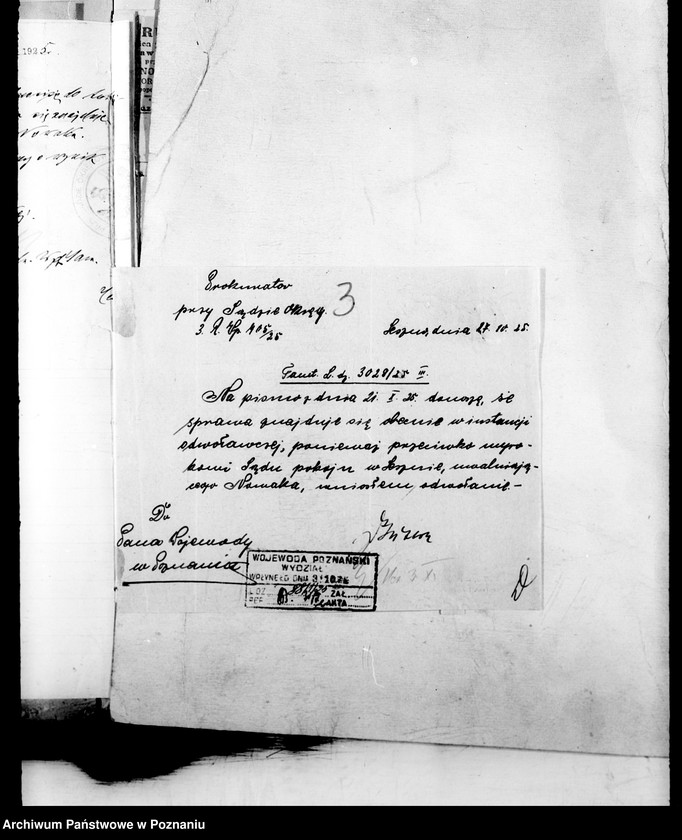 1925.
Nowaka.
Prokurator
przy Sądzie Okręg.
3
3. R. Vp 405/25
dnia 27. 10. 25.
L. dz. 3028/25 III.
Na pismo z dnia 21. X. 25. donoszę, że
sprawa znajduje się obecnie w instancji
odwoławczej, ponieważ przeciwko wyro-
kowi Sądu pokoju w uwalniają-
cego Nowaka, wniosłem odwołanie.-
Do
Pana Wojewody
w Poznaniu
WOJEWODA POZNAŃSKI
WYDZIAŁ
WPŁYNĘŁO DNIA 3 10 25
L. DZ. ZAŁ.
REF. AKTA
Archiwum Państwowe w Poznaniu